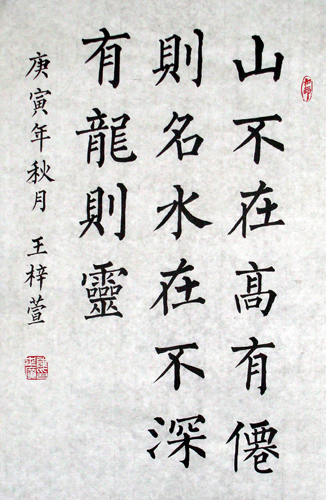 山不在高有僊
則名水在不深
有龍則靈
庚寅年秋月 王梓萱